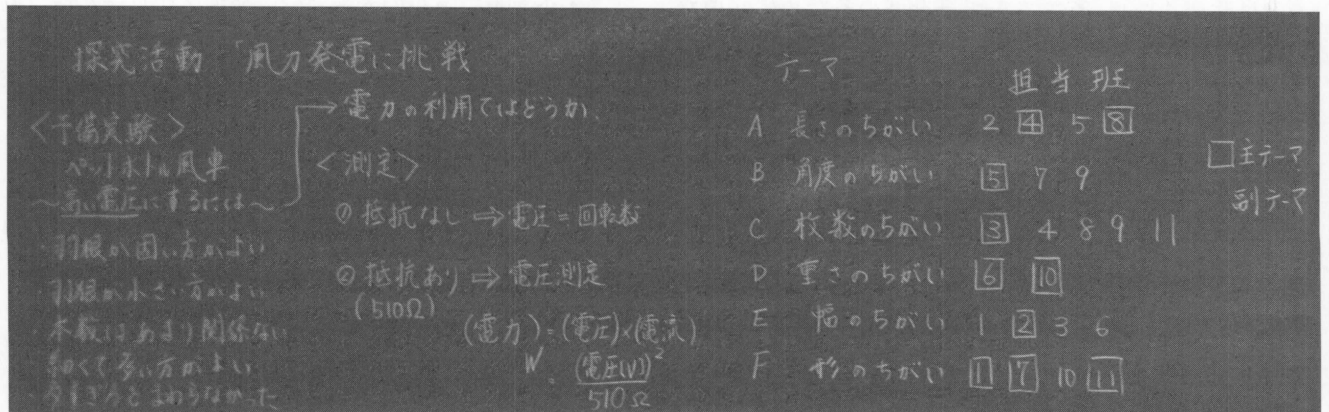 探究活動 「風力発電に挑戦
<予備実験>
ペットボトル風車
~高い電圧にするには~
・羽根が固い方がよい
・羽根が小さい方がよい
・本数はあまり関係ない
細くて多い方がよい
・多すぎるとまわらなかった
→電力の利用ではどうか、
<測定>
① 抵抗なし ⇒ 電圧=回転数
② 抵抗あり ⇒ 電圧測定
(510Ω)
(電力)=(電圧)×(電流)
W = (電圧(V))² / 510Ω
テーマ 担当班
A 長さのちがい 2 4 5 8
B 角度のちがい 5 7 9
C 枚数のちがい 3 4 8 9 11
D 重さのちがい 6 10
E 幅のちがい 1 2 3 6
F 形のちがい 1 7 10 11
□主テーマ
副テーマ